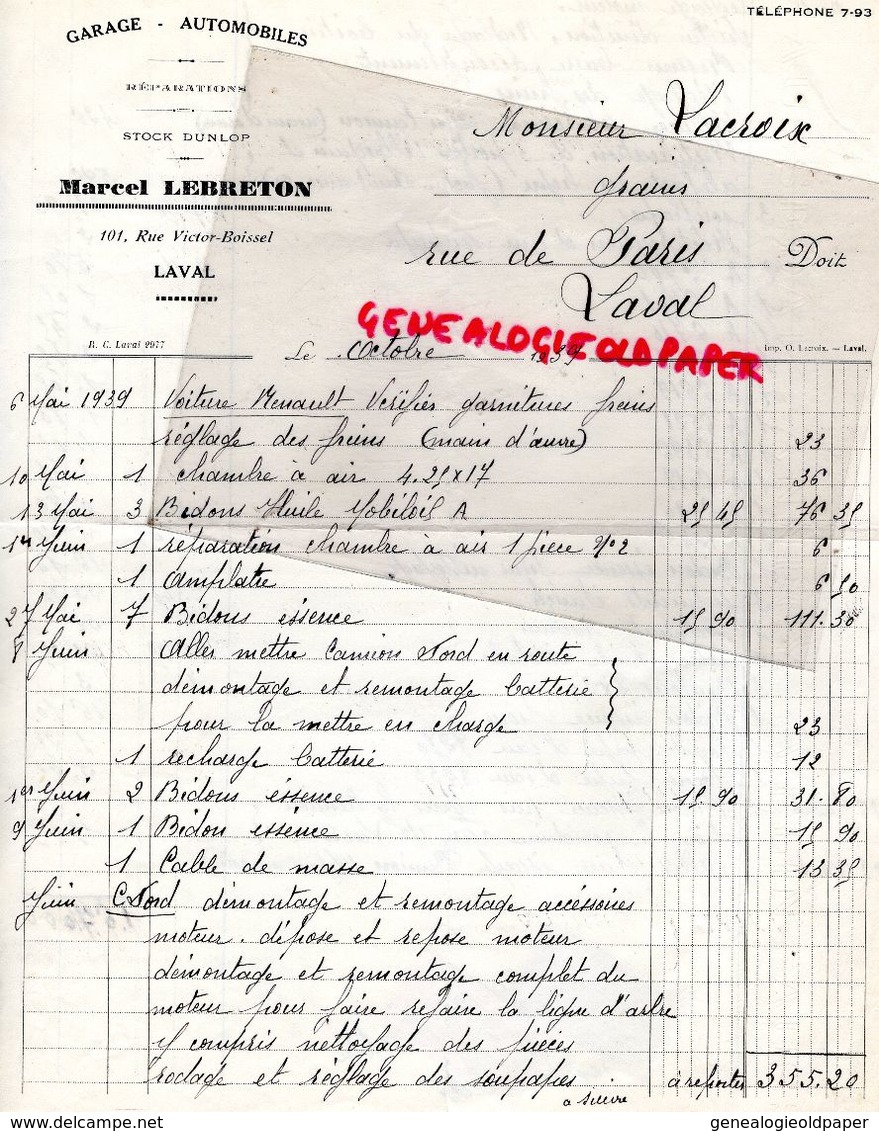 TÉLÉPHONE 7-93
GARAGE - AUTOMOBILES
RÉPARATIONS
STOCK DUNLOP
Marcel LEBRETON
101, Rue Victor-Boissel
LAVAL
Monsieur Lacroix
grains
rue de Paris Doit
Laval
GENEALOGIEOLDPAPER
R. C. Laval 2977
Imp. O. Lacroix. — Laval.
Le Octobre 1939
6 Mai 1939 Voiture Renault Vérifier garnitures freins
réglage des freins (main d'œuvre) 23
10 Mai 1 chambre à air 4.25x17 36
13 Mai 3 Bidons Huile Mobiloil A 25 45 76 35
1er Juin 1 réparation chambre à air 1 pièce No 2 6
1 Amplatre 6 50
27 Mai 7 Bidons éssence 15 90 111.30
8 Juin Aller mettre Camion Nord en route
démontage et remontage batterie
pour la mettre en charge 23
1 recharge batterie 12
1er Juin 2 Bidons éssence 15.90 31.80
9 Juin 1 Bidon éssence 15 90
1 Cable de masse 13 35
Juin C. Nord démontage et remontage accéssoires
moteur. dépose et repose moteur
démontage et remontage complet du
moteur pour faire refaire la ligne d'arbre
y compris nettoyage des pièces
rodage et réglage des soupapes à reporter 355.20
à suivre
delcampe.net
genealogieoldpaper